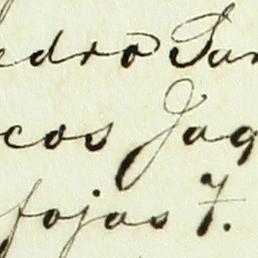 edro San
cos Jaq
fojas 7.